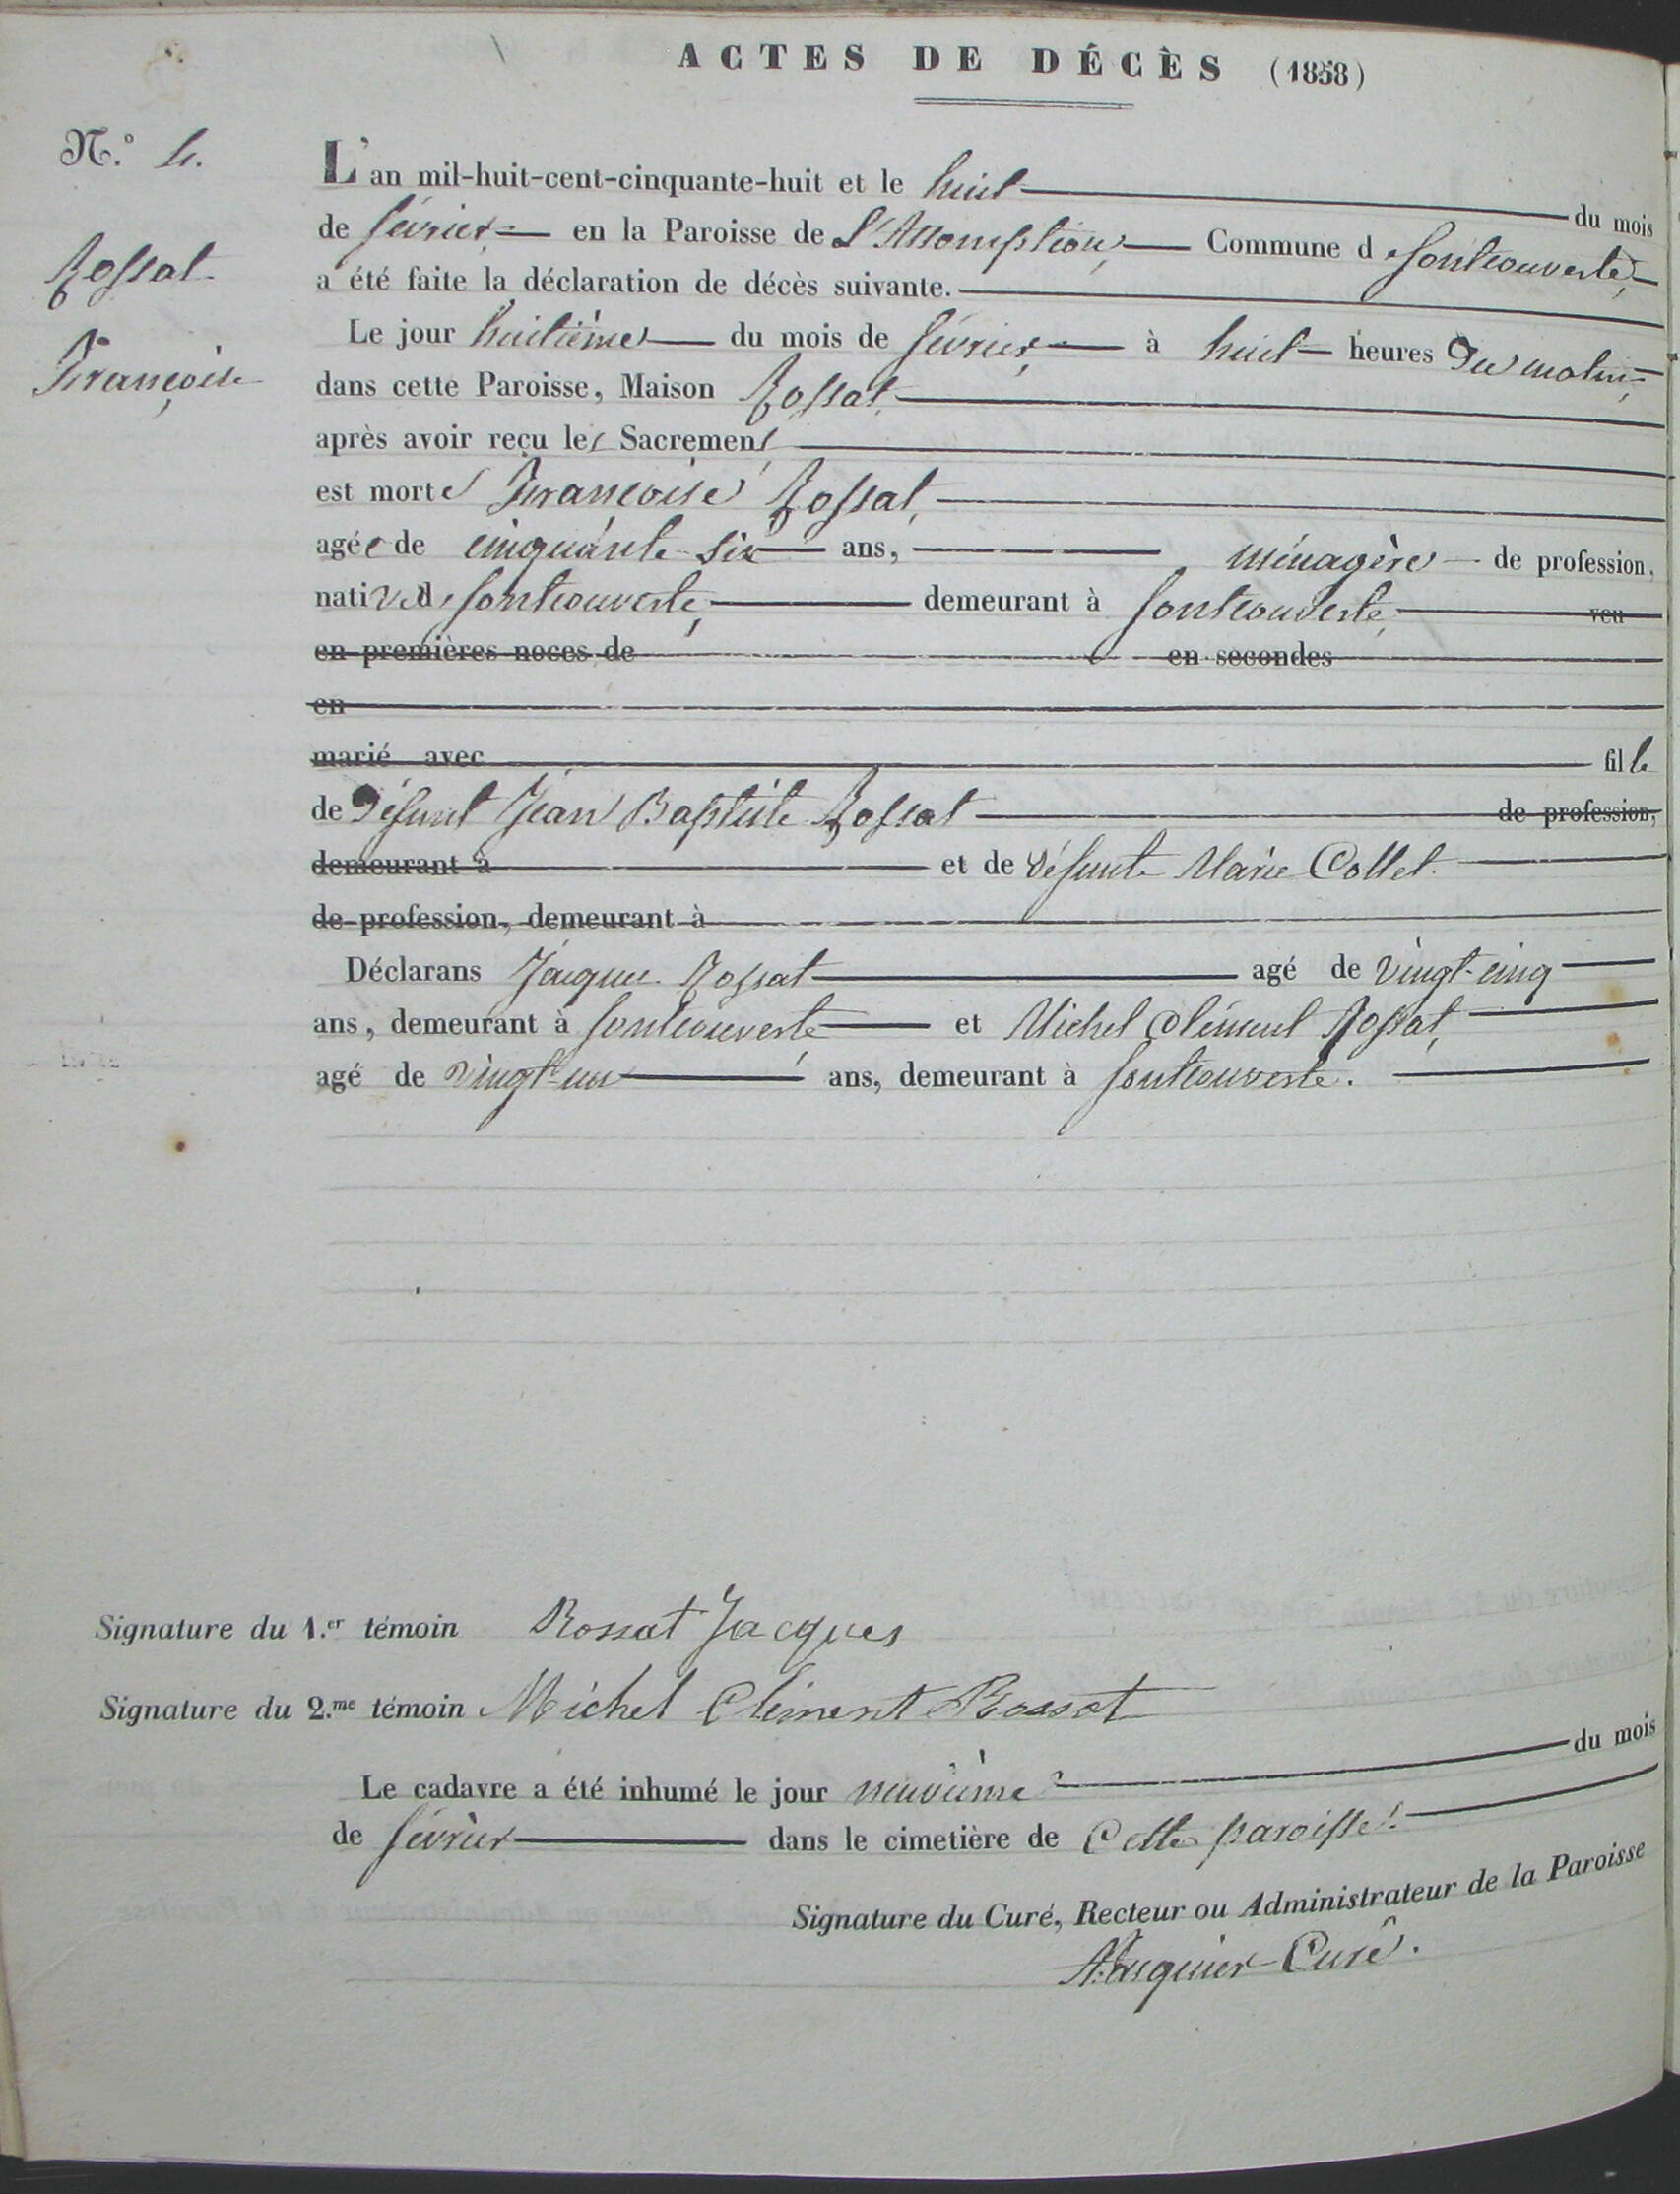 ACTES DE DÉCÈS (1858)
N.º 4.
Rossat
Françoise
L'an mil-huit-cent-cinquante-huit et le huit du mois
de février en la Paroisse de L'Assomption, Commune de fontcouverte,
a été faite la déclaration de décès suivante.
Le jour huitième du mois de février, à huit heures du matin,
dans cette Paroisse, Maison Rossat,
après avoir reçu les Sacremens
est morte Françoise Rossat,
agée de cinquante-six ans, ménagère de profession,
native de fontcouverte, demeurant à fontcouverte, veu
en premières noces de en secondes
en
marié avec fille
de défunt Jean Baptiste Rossat de profession,
demeurant à et de défunte Marie Collet.
de profession, demeurant à
Déclarans Jacques Rossat agé de vingt-cinq
ans, demeurant à fontcouverte et Michel Clément Rossat,
agé de vingt-un ans, demeurant à fontcouverte.
Signature du 1.er témoin Rossat Jacques
Signature du 2.me témoin Michel Clément Rossat
Le cadavre a été inhumé le jour neuvième du mois
de février dans le cimetière de Cette paroisse.
Signature du Curé, Recteur ou Administrateur de la Paroisse
Curé.